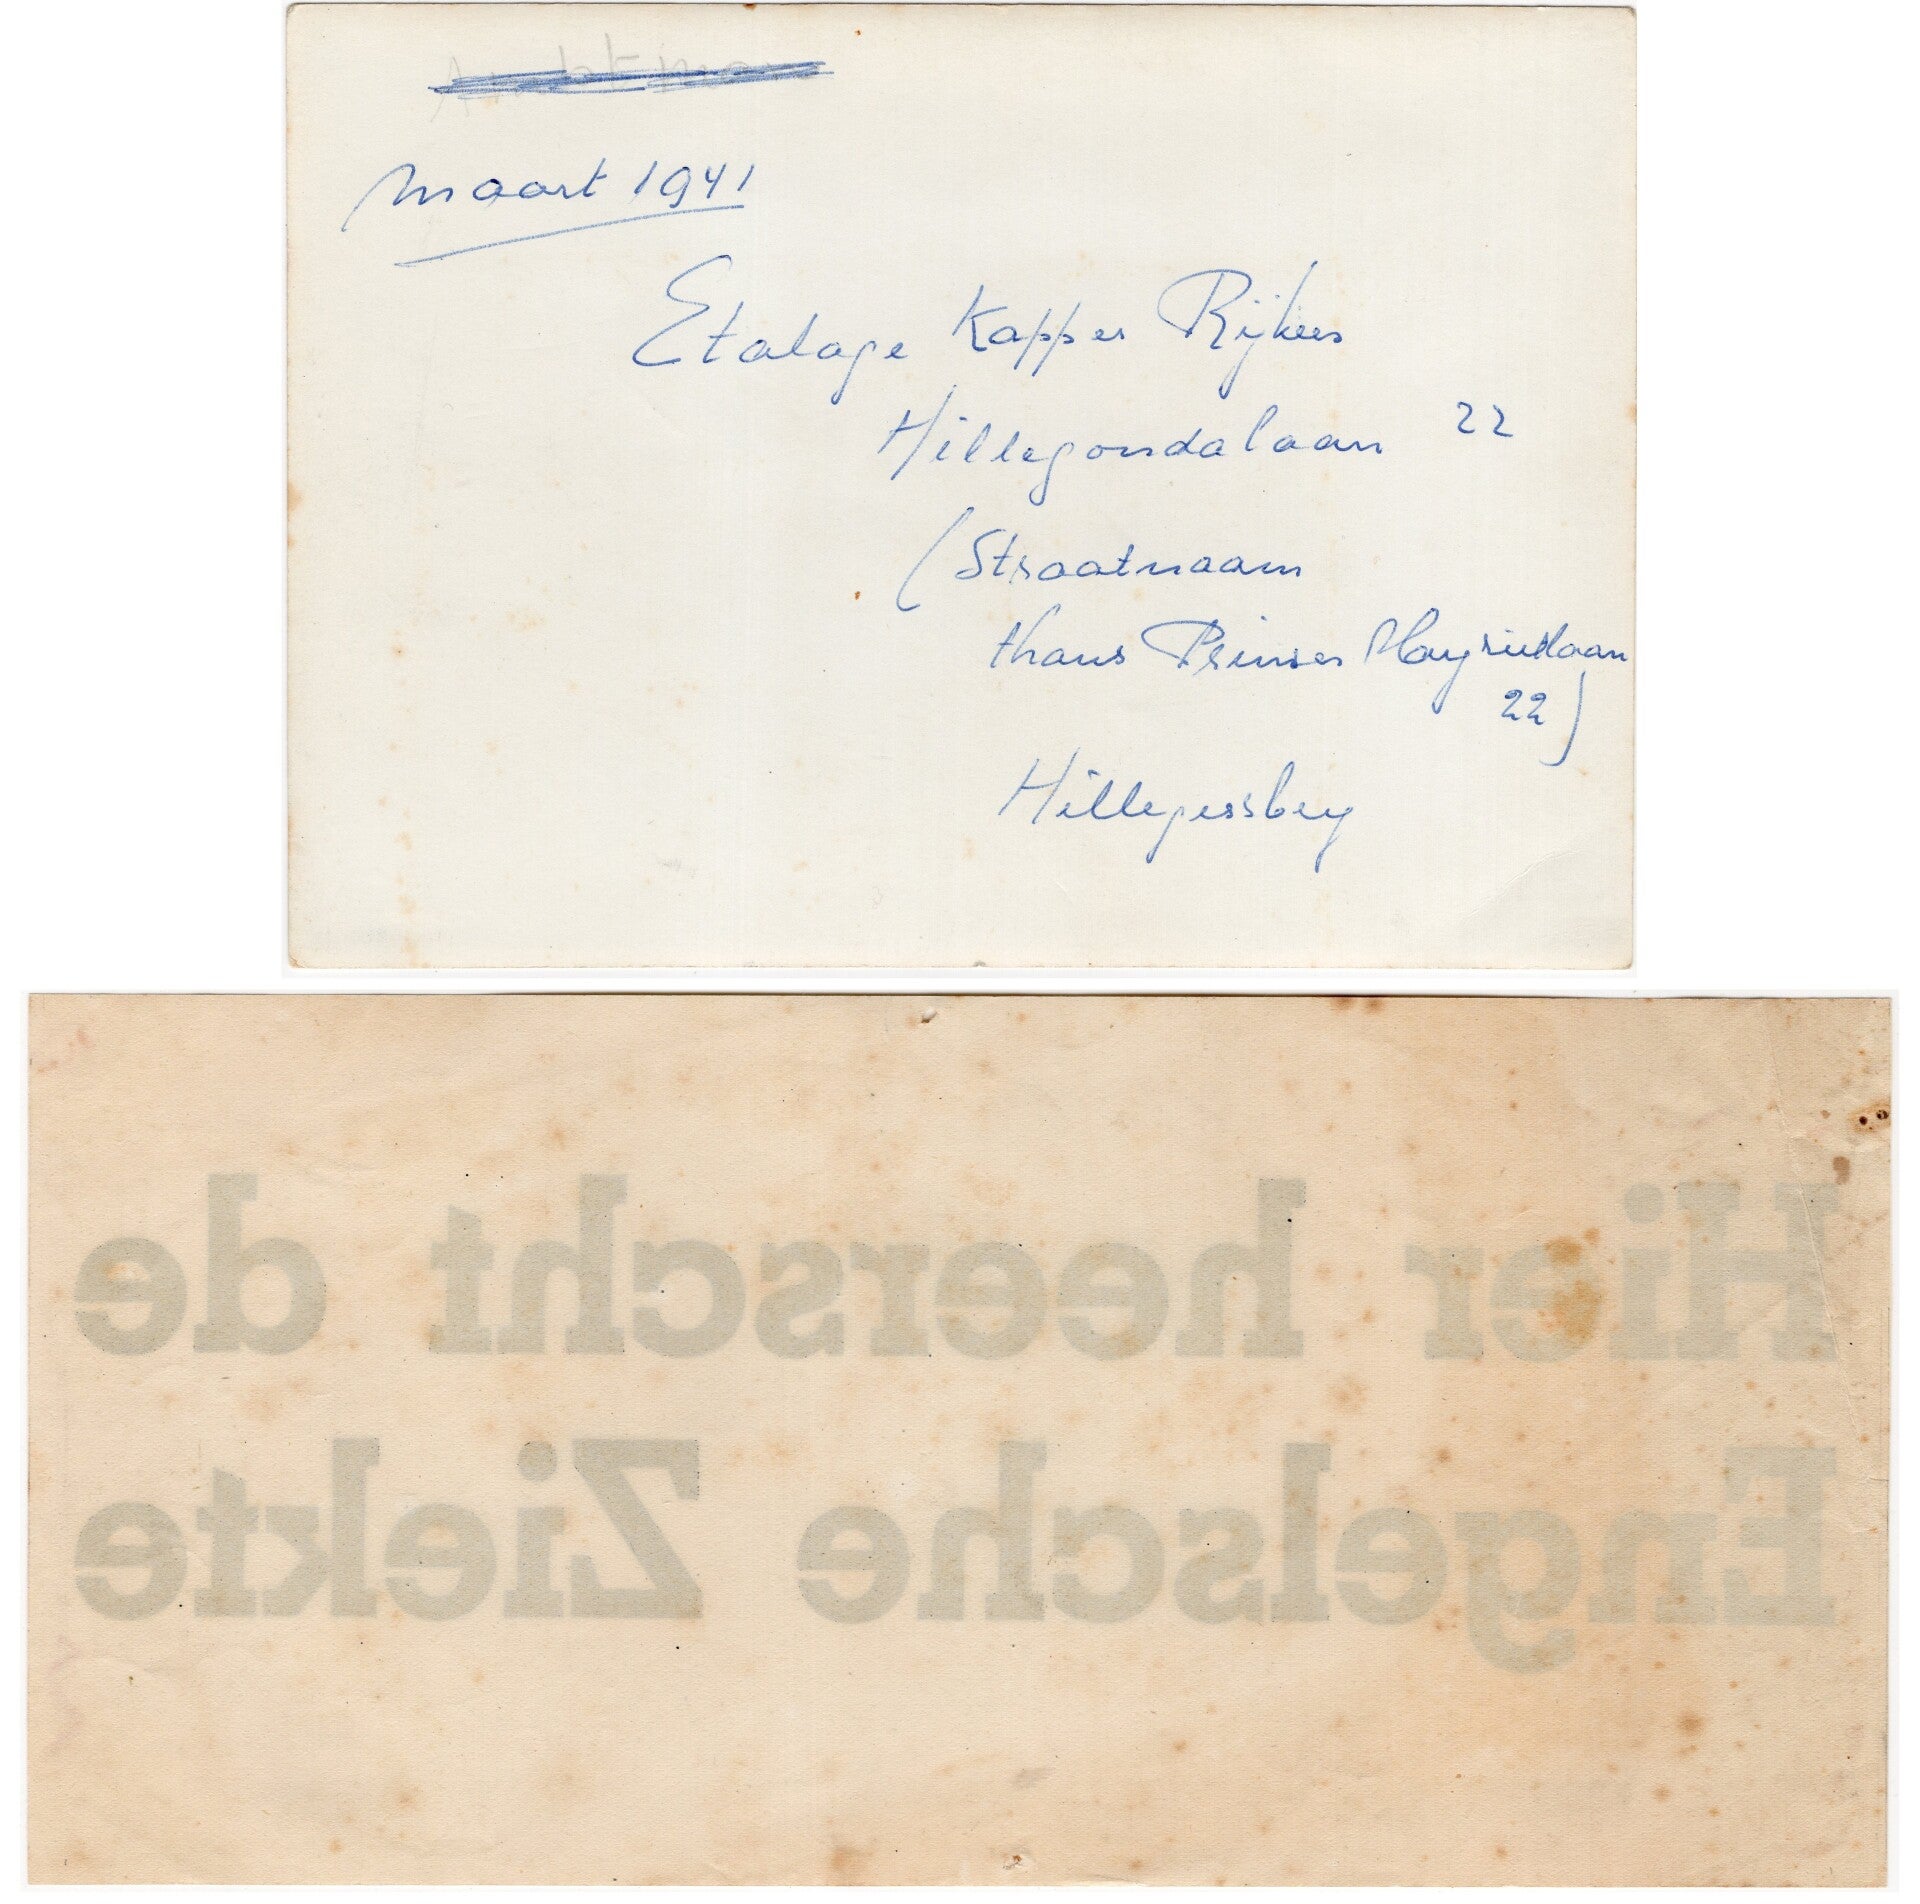 maart 1941
Etalage Kapper Rijkers
Hillegondalaan 22
(Straatnaam
thans Prinses Margrietlaan
22)
Hillegersberg
Hier heerscht de
Engelsche Ziekte